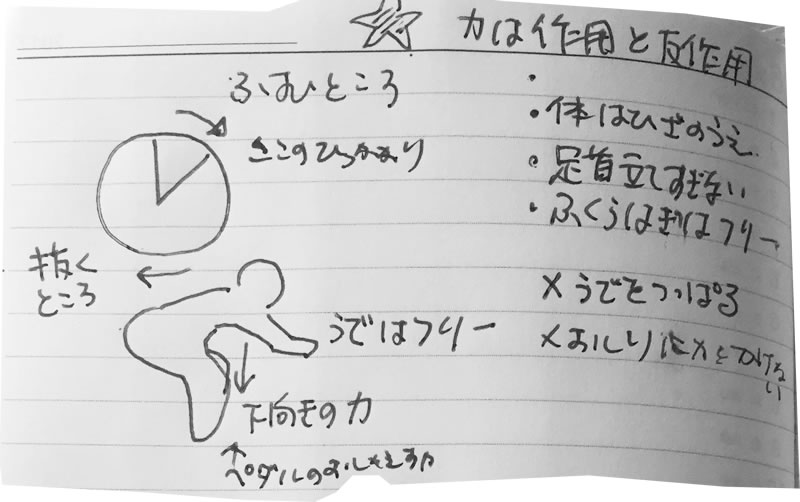 力は作用と反作用
ふむところ
ここのひっかかり
・
・体はひざのうえ
・足首立てすぎない
・ふくらはぎはフリー
抜く
ところ
×うでをつっぱる
うではフリー
×おしりに×をつけない
下向きの力
ペダルのおしかえす力